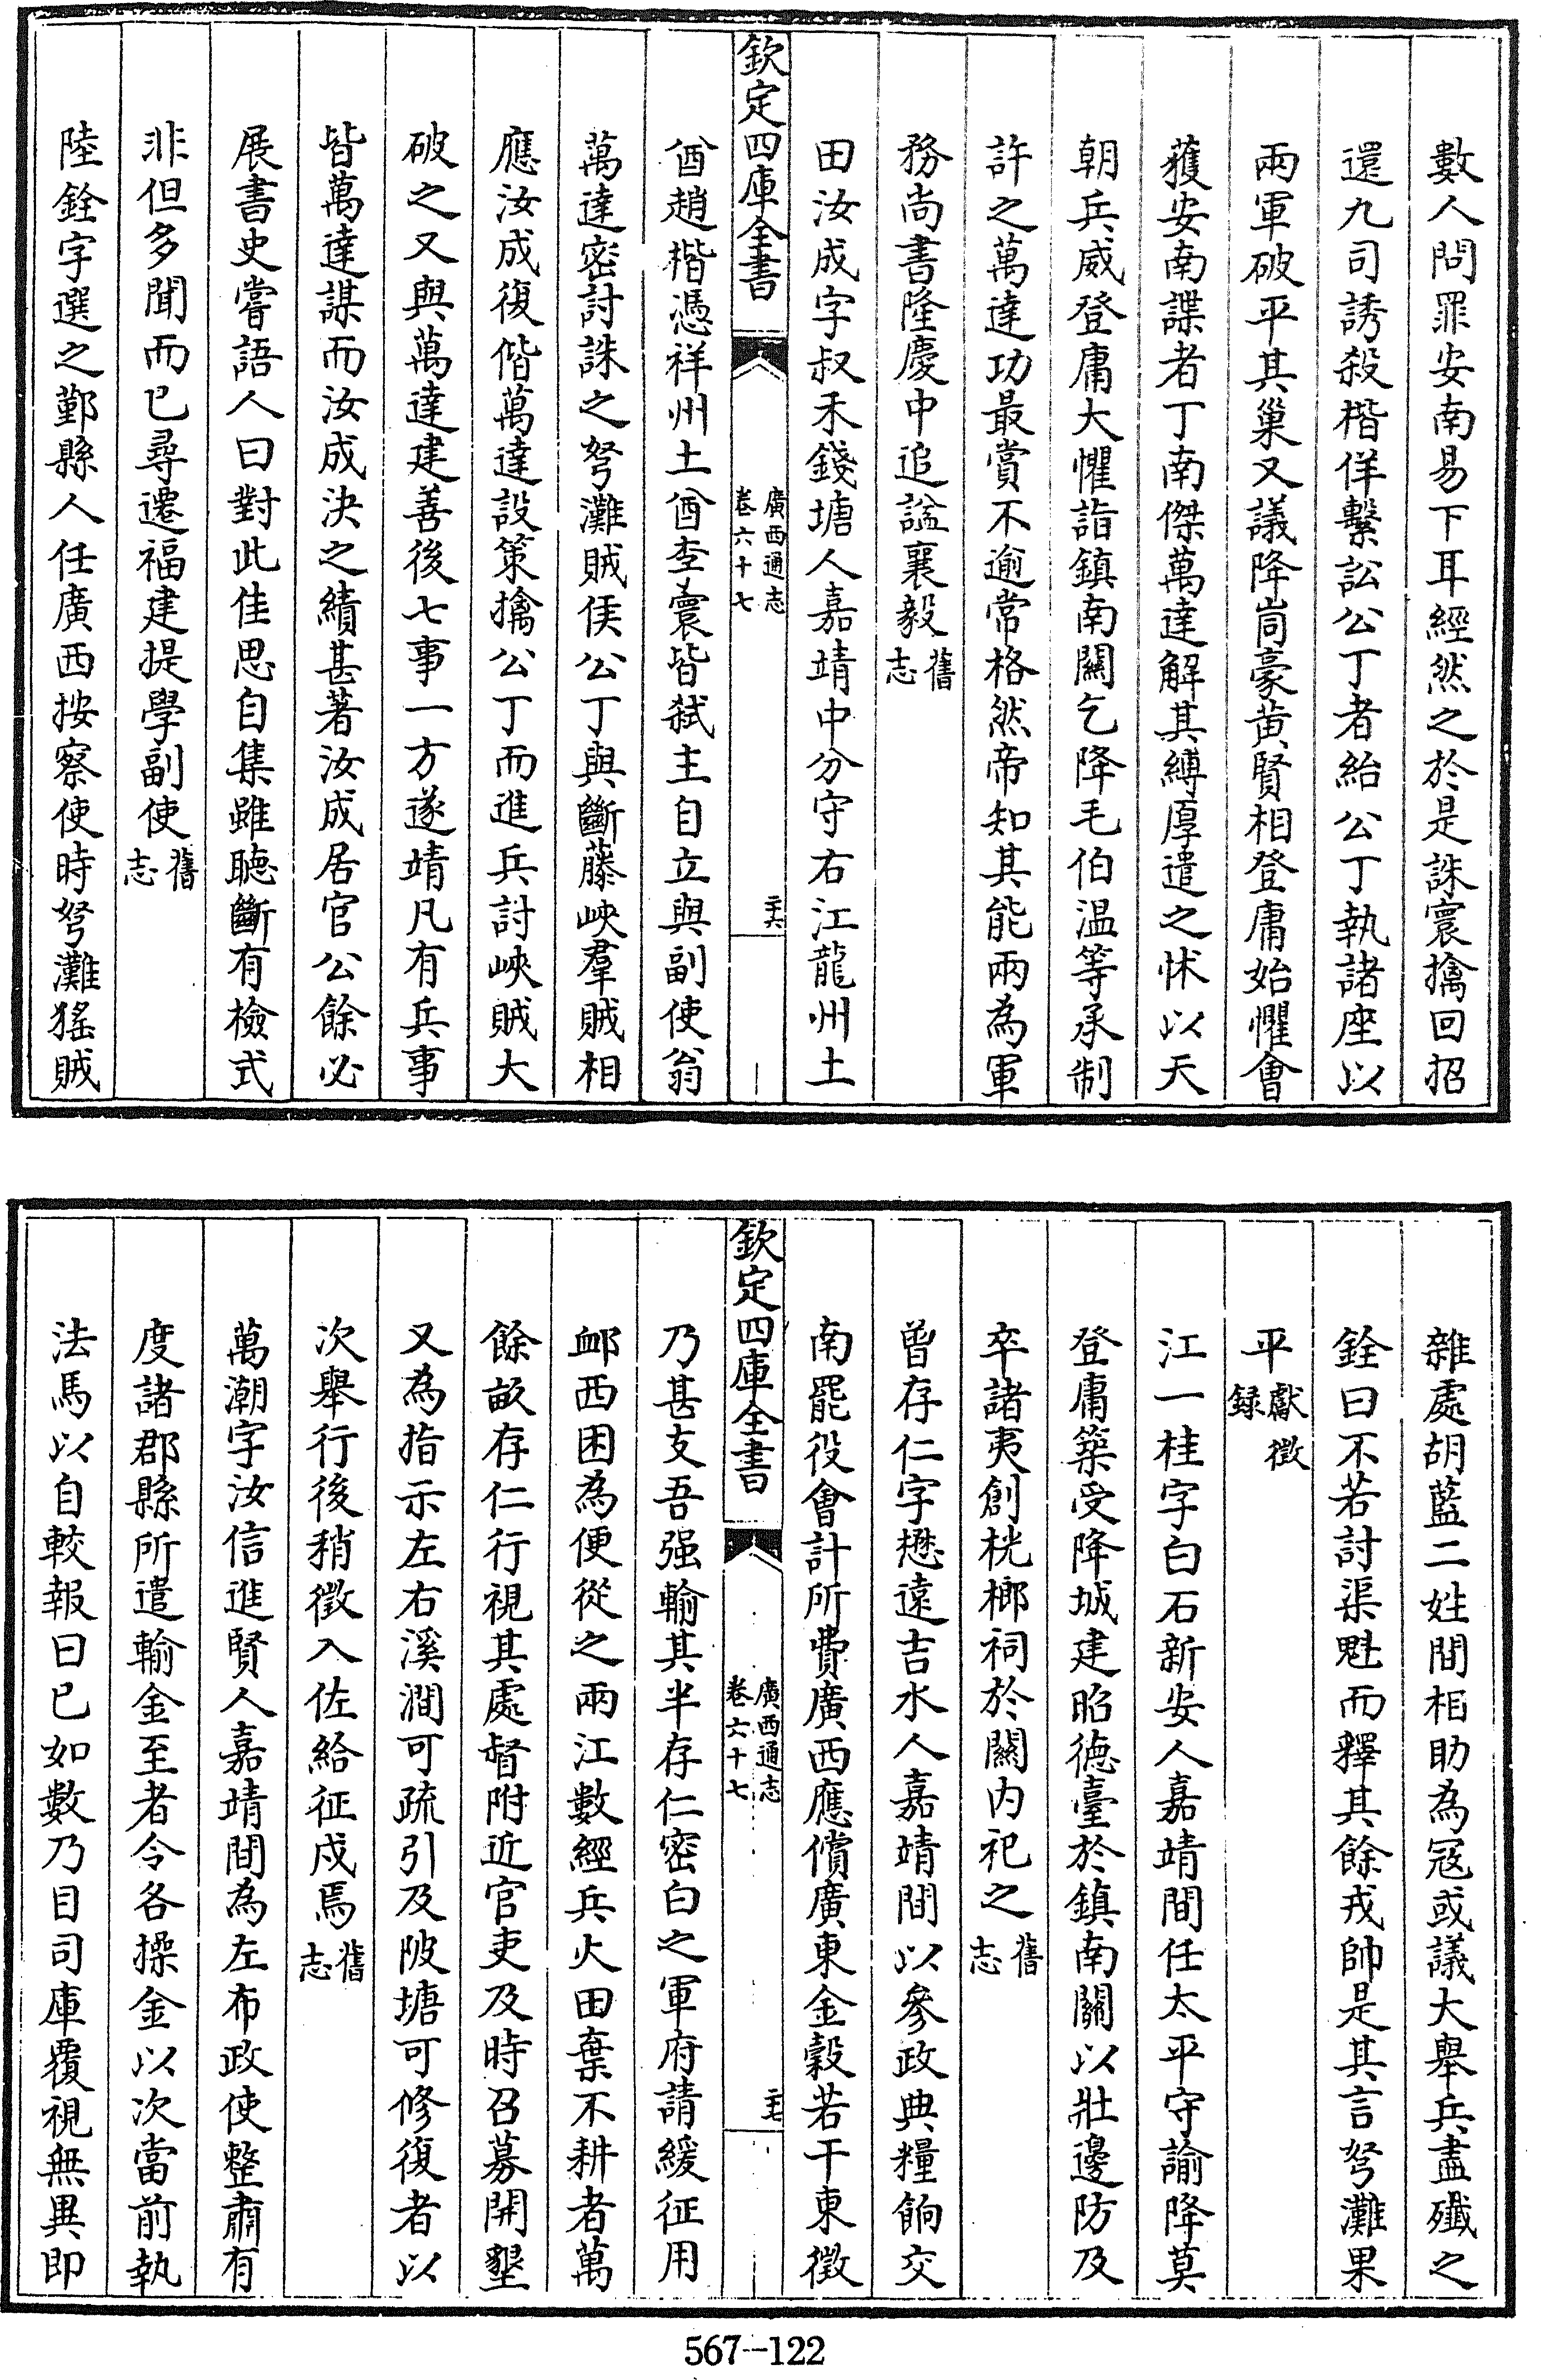 數人問罪安南易下耳經然之於是誅寰擒回招
還九司誘殺楷佯繫訟公丁者紿公丁執諸座以
兩軍破平其巢又議降峝豪黄賢相登庸始懼會
獲安南諜者丁南傑萬達解其縛厚遣之怵以天
朝兵威登庸大懼詣鎮南關乞降毛伯温等承制
許之萬達功最賞不逾常格然帝知其能兩為軍
務尚書隆慶中追謚襄毅舊志
田汝成字叔禾錢塘人嘉靖中分守右江龍州土
欽定四庫全書
廣西通志
卷六十七
二十六
酋趙楷憑祥州土酋李寰皆弑主自立與副使翁
萬達密討誅之弩灘賊侯公丁與斷藤峽羣賊相
應汝成復偕萬達設策擒公丁而進兵討峽賊大
破之又與萬達建善後七事一方遂靖凡有兵事
皆萬達謀而汝成決之績甚著汝成居官公餘必
展書史嘗語人曰對此佳思自集雖聴斷有檢式
非但多聞而已尋遷福建提學副使舊志
陸銓字選之鄞縣人任廣西按察使時弩灘猺賊
雜處胡藍二姓間相助為冦或議大舉兵盡殲之
銓曰不若討渠魁而釋其餘戎帥是其言弩灘果
平獻徵録
江一桂字白石新安人嘉靖間任太平守諭降莫
登庸築受降城建昭德臺於鎮南關以壯邊防及
卒諸夷創桄榔祠於關内祀之舊志
曾存仁字懋遠吉水人嘉靖間以參政典糧餉交
南罷役會計所費廣西應償廣東金穀若干東徵
欽定四庫全書
廣西通志
卷六十七
二十七
乃甚支吾强輸其半存仁密白之軍府請緩征用
䘏西困為便從之兩江數經兵火田棄不耕者萬
餘畝存仁行視其處督附近官吏及時召募開墾
又為指示左右溪澗可疏引及陂塘可修復者以
次舉行後稍徵入佐給征戍焉舊志
萬潮字汝信進賢人嘉靖間為左布政使整肅有
度諸郡縣所遣輸金至者令各操金以次當前執
法馬以自較報曰已如數乃目司庫覆視無異即
567-122